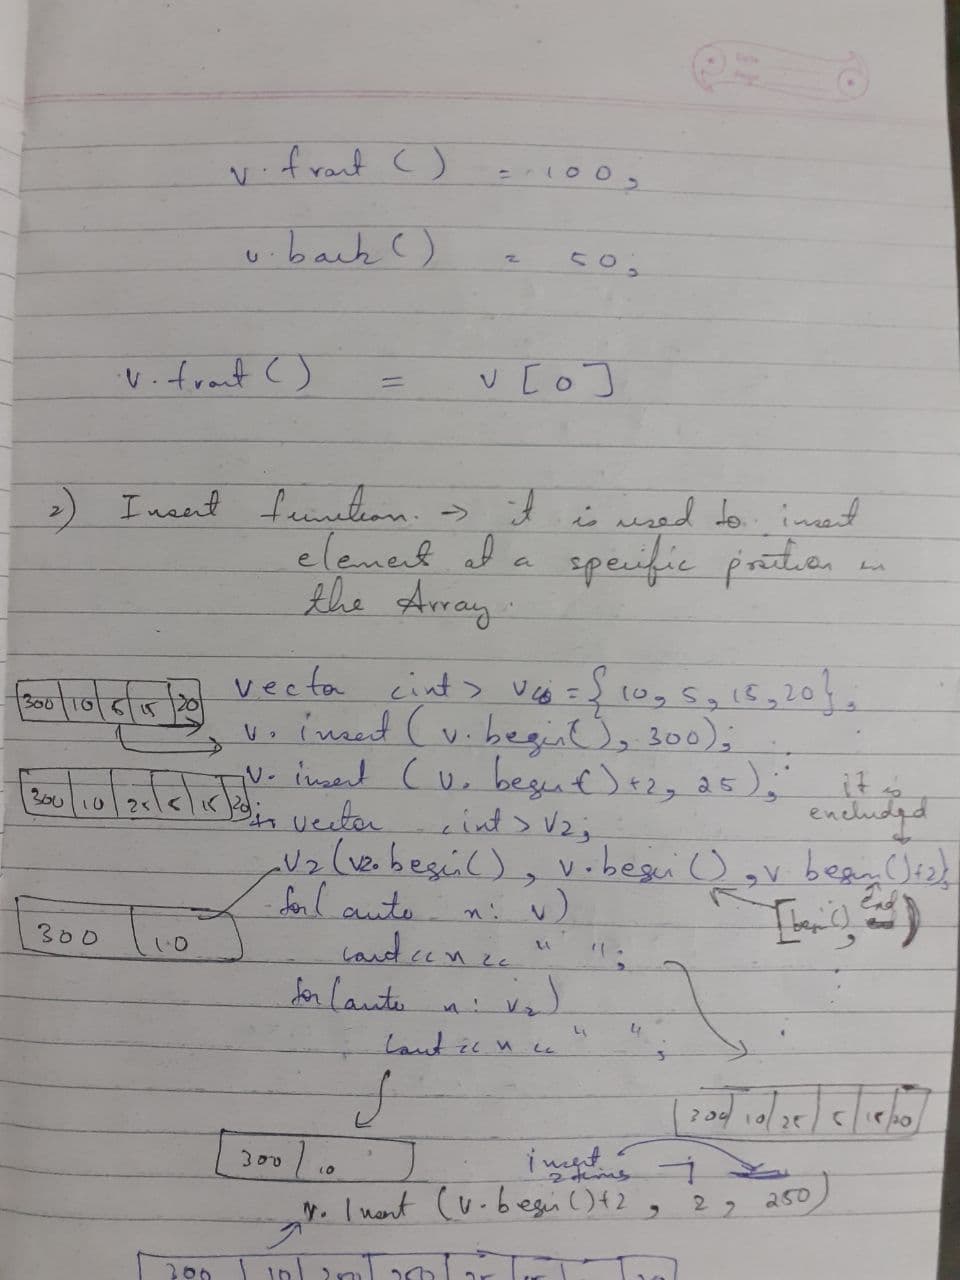 v.front() = 100;
v.back() = 50;
v.front() = v[0]
2) Insert function. → it is used to insert
element at a specific position in
the Array.
300 10 5 15 20
vector <int> v = { 10, 5, 15, 20 };
v. insert ( v. begin(), 300);
v. insert ( v. begin()+2, 25);
it is
excluded
300 10 25 5 15 20
vector <int> v2;
v2 (v2.begin(), v.begin(), v begin()+2);
[begin(), End)
for( auto n: v)
300 10
cout << n << " ";
for(auto n: v2)
cout << n << " ";
300 10 25 5 15 20
300 10
insert
2 times
v. Insert (v.begin()+2, 2, 250)
300 10 250 250 25